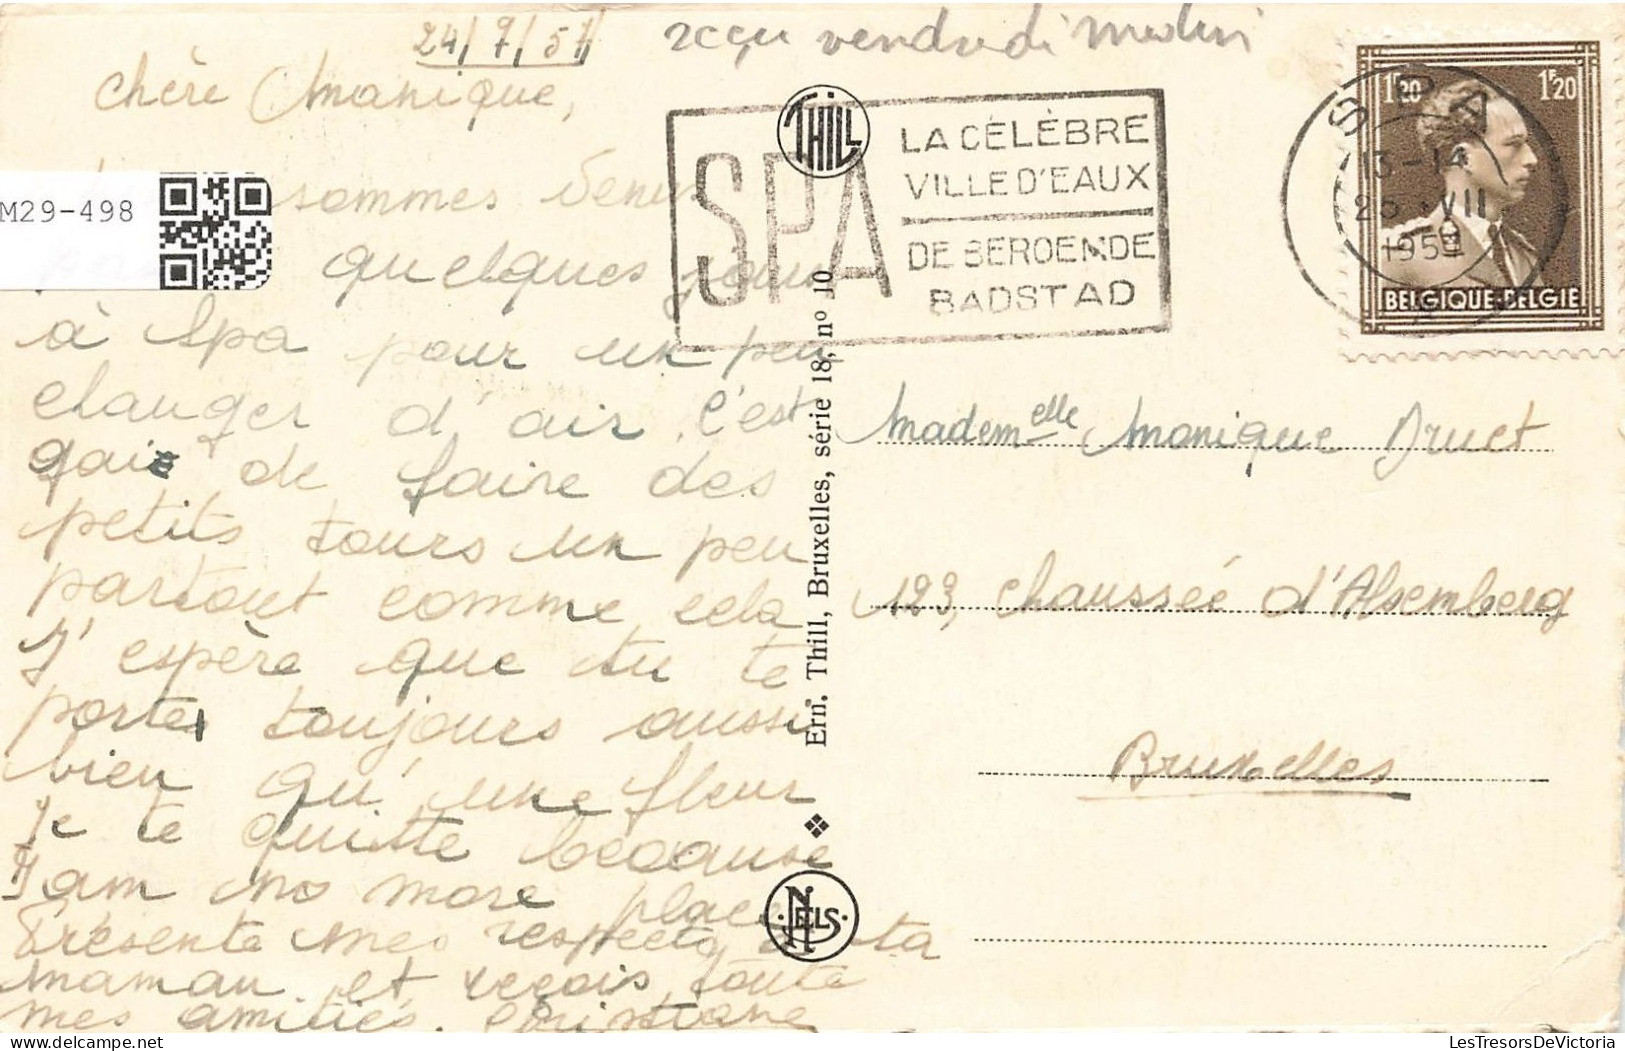 24/7/57 reçu vendredi matin
chère Monique,
sommes venus
quelques jours
à Spa pour un peu
changer d'air, c'est
gai de faire des
petits tours un peu
partout comme cela
J'espère que tu te
portes toujours aussi
bien qu'une fleur
Je te quitte because
I am no more place
Présente mes respects à ta
maman et reçois toute
mes amitiés. Christiane
M29-498
THILL
SPA
LA CÉLÈBRE
VILLE D'EAUX
DE BEROEMDE
BADSTAD
SPA
13-14
25 VII
1957
1F20 1F20
BELGIQUE-BELGIE
Ern. Thill, Bruxelles, série 18, nº 10
NELS
Mademelle Monique Druet
123, chaussée d'Alsemberg
Bruxelles
LesTresorsDeVictoria